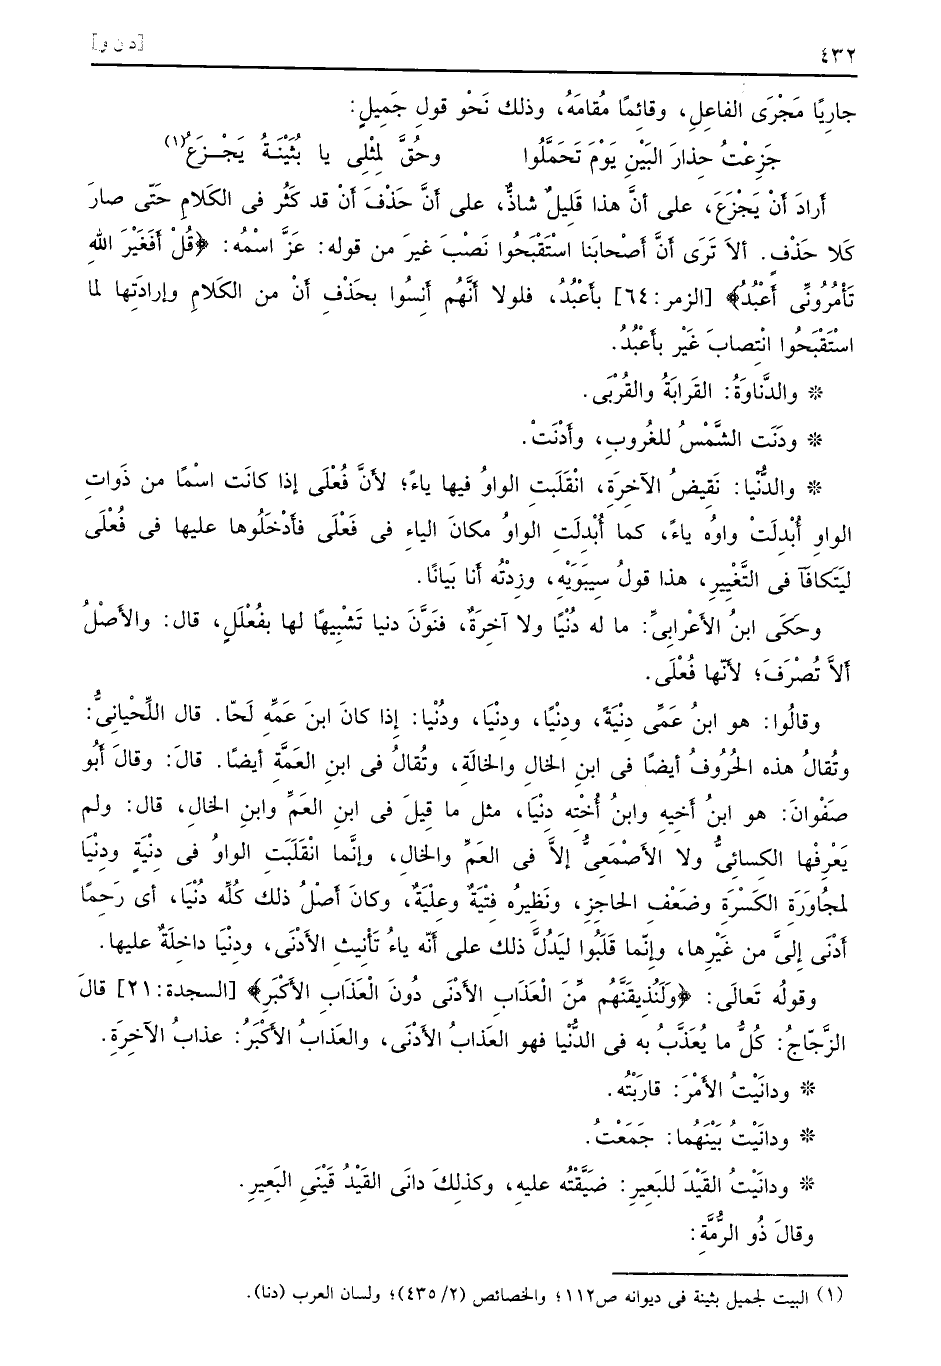 ٤٣٢ [د ن و]
جاريًا مَجْرَى الفاعلِ، وقائمًا مُقامَهُ، وذلك نَحْو قولِ جَميلٍ:
جَزِعْتُ حِذارَ البَيْنِ يَوْمَ تَحَمَّلُوا وحُقَّ لِمثْلِى يا بُثَيْنَةُ يَجْزَعُ(١)
أرادَ أنْ يَجْزَعَ، على أنَّ هذا قَليلٌ شاذٌّ، على أنَّ حَذْفَ أنْ قد كَثُر فى الكَلامِ حَتَّى صارَ
كَلا حَذْفٍ. ألاَ تَرَى أنَّ أصْحابَنا اسْتَقْبَحُوا نَصْبَ غيرَ من قوله: عَزَّ اسْمُه: ﴿قُلْ أفَغَيْرَ اللهِ
تَأْمُرُونِّى أعْبُدُ﴾ [الزمر:٦٤] بأعْبُدُ، فلولا أنَّهُم أنِسُوا بحَذْفِ أنْ من الكَلامِ وإرادَتِها لما
اسْتَقْبَحُوا انْتِصابَ غَيْر بأعْبُدُ.
* والدَّناوَةُ: القَرابَةُ والقُرْبَى.
* ودَنَت الشَّمْسُ للغُروبِ، وأدْنَتْ.
* والدُّنْيا: نَقيضُ الآخِرَةِ، انْقَلَبت الواوُ فيها ياءً؛ لأنَّ فُعْلَى إذا كانَت اسْمًا من ذَوات
الواوِ أُبْدِلَتْ واوُه ياءً، كما أُبْدِلَتِ الواوُ مكانَ الياءِ فى فَعْلَى فأدْخَلُوها عليها فى فُعْلَى
ليَتَكافَآ فى التَّغْييرِ، هذا قولُ سيبَوَيْهِ، وزِدْتُه أنا بَيانًا.
وحَكَى ابنُ الأعْرابىِّ: ما له دُنْيًا ولا آخِرَةٌ، فنَوَّنَ دنيا تَشْبِيهًا لها بفُعْلَلٍ، قال: والأصْلُ
ألاَّ تُصْرَفَ؛ لأنّها فُعْلَى.
وقالُوا: هو ابنُ عَمِّى دِنْيَةً، ودِنْيًا، ودِنْيَا، ودُنْيا: إذا كانَ ابنَ عَمِّه لَحّا. قال اللِّحْيانىُّ:
وتُقالُ هذه الحُرُوفُ أيضًا فى ابنِ الخالِ والخالَةِ، وتُقالُ فى ابنِ العَمَّةِ أيضًا. قالَ: وقالَ أبُو
صَفْوانَ: هو ابنُ أخيهِ وابنُ أُخْتِه دِنْيَا، مثل ما قِيلَ فى ابنِ العَمِّ وابنِ الخال، قال: ولم
يَعْرِفْها الكسائىُّ ولا الأصْمَعىُّ إلاَّ فى العَمِّ والخالِ، وإنَّما انْقَلَبَتِ الواوُ فى دِنْيَةٍ ودِنْيَا
لمجُاوَرَةِ الكَسْرَةِ وضَعْفِ الحاجِزِ، ونَظيرُه فِتْيَةٌ وعِلْيَةٌ، وكانَ أصْلُ ذلك كُلِّه دُنْيَا، أى رَحِمًا
أدْنَى إلىَّ من غَيْرِها، وإنّما قَلَبُوا ليَدُلَّ ذلك على أنّه ياءُ تَأْنيثِ الأدْنَى، ودِنْيَا داخِلَةٌ عليها.
وقولُه تَعالَى: ﴿ولَنُذِيقَنَّهُم مِّنَ الْعَذَابِ الأدْنَى دُونَ الْعَذَابِ الأكْبَرِ﴾ [السجدة:٢١] قالَ
الزَّجّاجُ: كُلُّ ما يُعَذَّبُ به فى الدُّنْيا فهو العَذابُ الأدْنَى، والعَذابُ الأكْبَرُ: عذابُ الآخِرَةِ.
* ودانَيْتُ الأمْرَ: قارَبْتُه.
* ودانَيْتُ بَيْنَهُما: جَمَعْتُ.
* ودانَيْتُ القَيْدَ للبَعيرِ: ضَيَّقْتُه عليهِ، وكذلكَ دانَى القَيْدُ قَيْنَىِ البَعيرِ.
وقالَ ذُو الرُّمَّةِ:
(١) البيت لجميل بثينة فى ديوانه ص١١٢؛ والخصائص (٢/ ٤٣٥)؛ ولسان العرب (دنا).